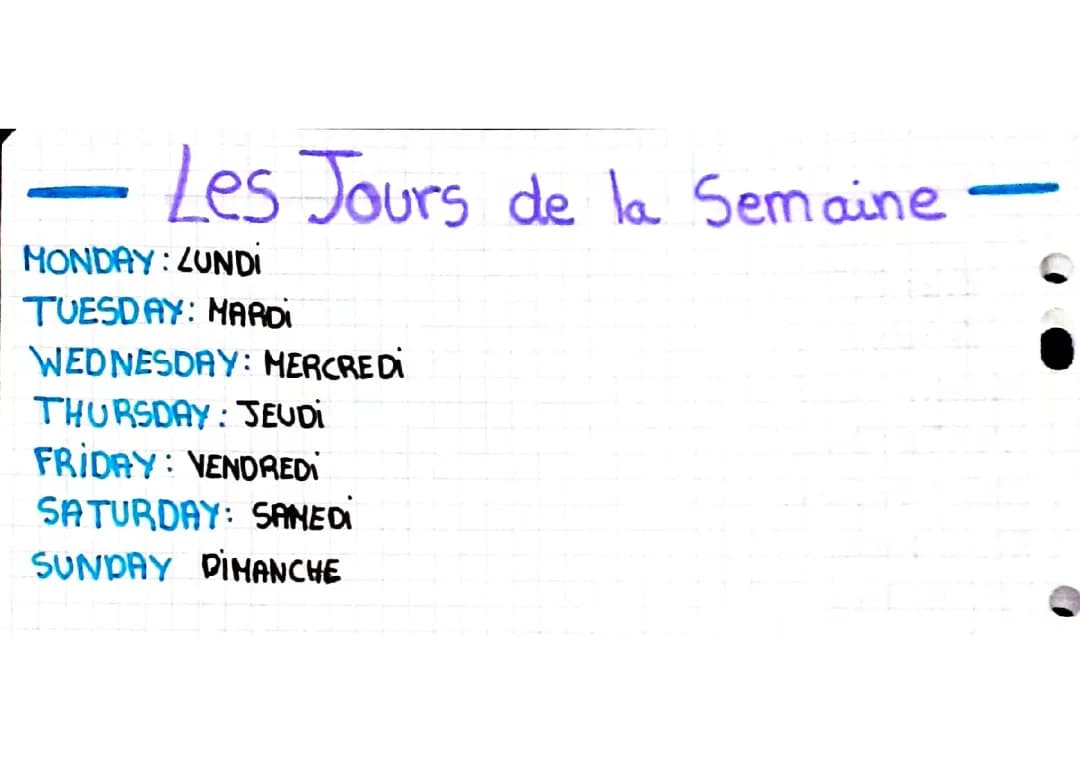 Les Jours de la Semaine
MONDAY: LUNDi
TUESDAY: MARDi
WEDNESDAY: MERCREDi
THURSDAY: JEUDi
FRiDAY: VENDREDi
SATURDAY: SAMEDi
SUNDAY DiMANCHE